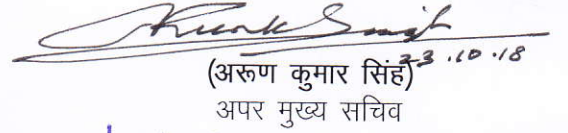 23.10.18
(अरूण कुमार सिंह)
अपर मुख्य सचिव